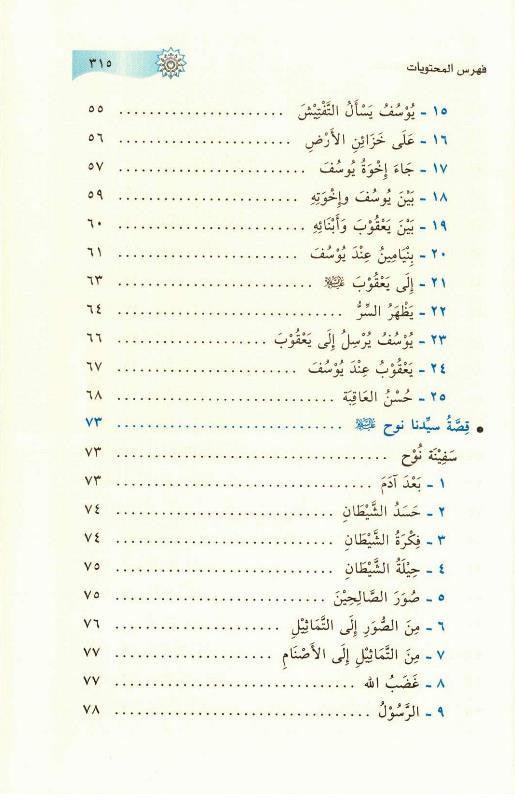 فهرس المحتويات ٣١٥
١٥ - يُوْسُفُ يَسْأَلُ التَّفْتِيْشَ ...................... ٥٥
١٦ - عَلَى خَزَائِنِ الأَرْضِ ...................... ٥٦
١٧ - جَاءَ إِخْوَةُ يُوسُفَ ...................... ٥٧
١٨ - بَيْنَ يُوسُفَ وإِخْوَتِهِ ...................... ٥٩
١٩ - بَيْنَ يَعْقُوْبَ وَأَبْنَائِهِ ...................... ٦٠
٢٠ - بِنْيَامِينُ عِنْدَ يُوْسُفَ ...................... ٦١
٢١ - إِلَى يَعْقُوْبَ ...................... ٦٣
٢٢ - يَظْهَرُ السِّرُّ ...................... ٦٤
٢٣ - يُوْسُفُ يُرْسِلُ إِلَى يَعْقُوْبَ ...................... ٦٦
٢٤ - يَعْقُوْبُ عِنْدَ يُوْسُفَ ...................... ٦٧
٢٥ - حُسْنُ العَاقِبَة ...................... ٦٨
• قِصَّةُ سيِّدنا نوح ...................... ٧٣
سَفِيْنَة نُوْح ...................... ٧٣
١ - بَعْدَ آدَمَ ...................... ٧٣
٢ - حَسَدُ الشَّيْطَانِ ...................... ٧٤
٣ - فِكْرَةُ الشَّيْطَانِ ...................... ٧٤
٤ - حِيْلَةُ الشَّيْطَانِ ...................... ٧٥
٥ - صُوَرَ الصَّالِحِيْنَ ...................... ٧٥
٦ - مِنَ الصُّوَرِ إِلَى التَّمَاثِيْلِ ...................... ٧٦
٧ - مِنَ التَّمَاثِيْلِ إِلَى الأَصْنَامِ ...................... ٧٧
٨ - غَضَبُ الله ...................... ٧٧
٩ - الرَّسُوْلُ ...................... ٧٨